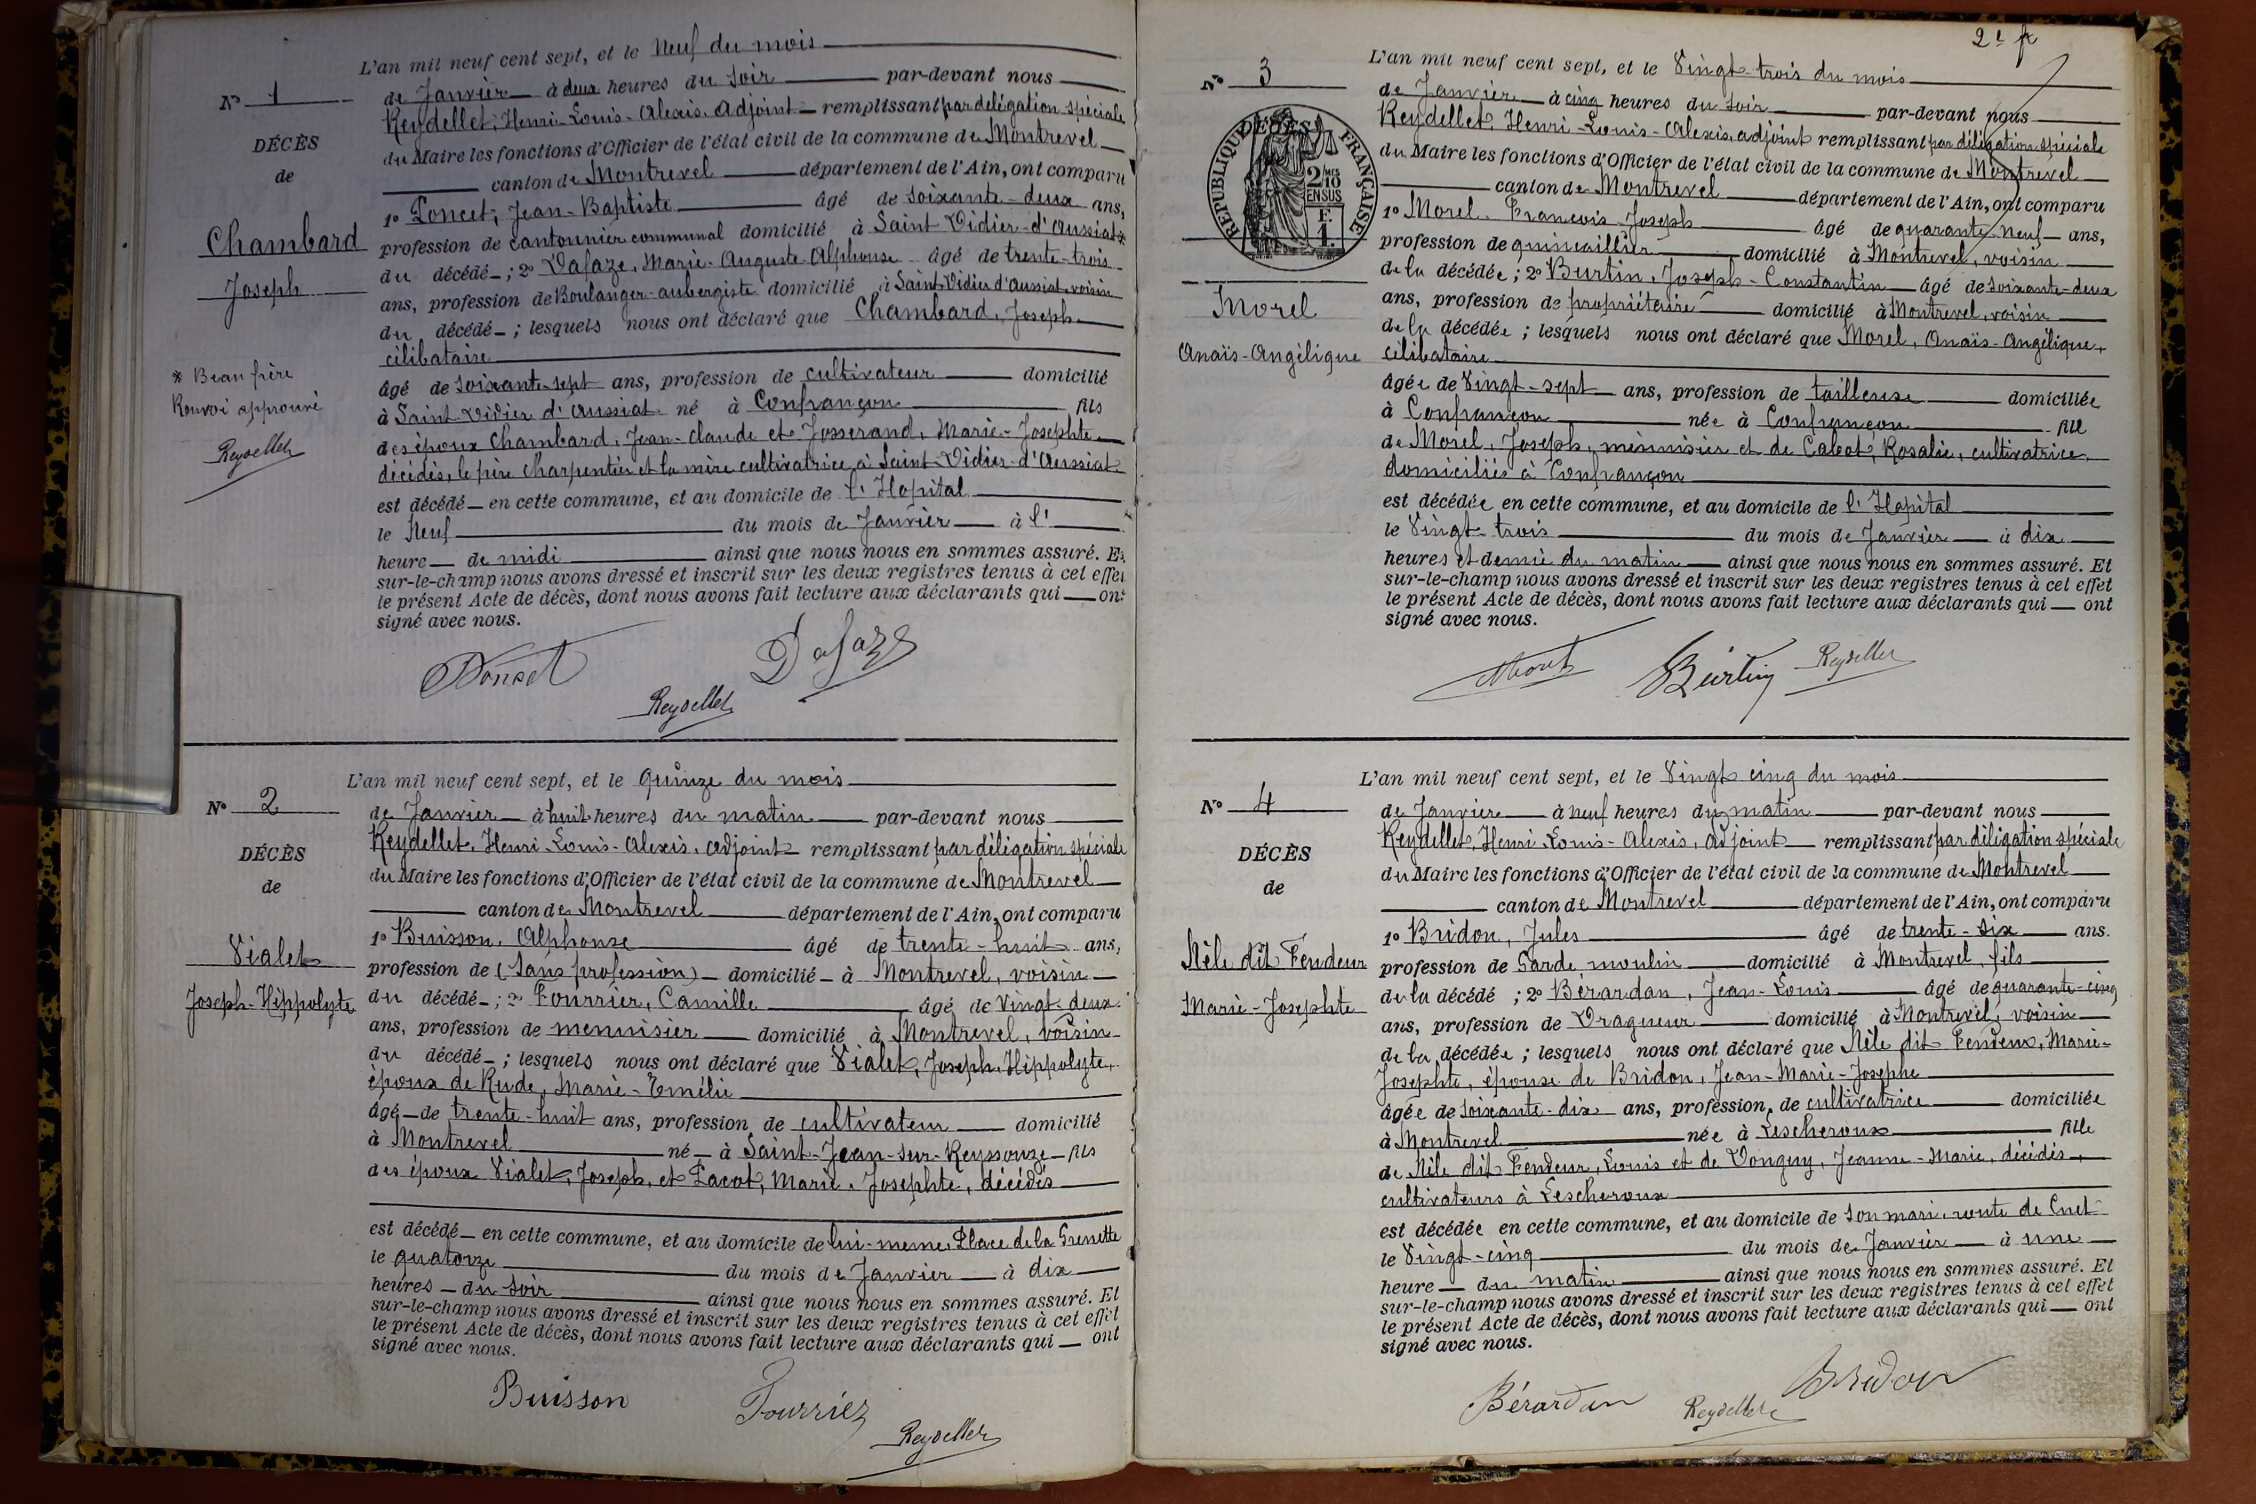 L'an mil neuf cent sept, et le Neuf du mois
N° 1
de Janvier à deux heures du soir par-devant nous
Reydellet, Henri-Louis-Alexis, adjoint remplissant par délégation spéciale
DÉCÈS
du Maire les fonctions d'Officier de l'état civil de la commune de Montrevel
de
canton de Montrevel département de l'Ain, ont comparu
1° Poncet, Jean-Baptiste âgé de soixante-deux ans,
Chambard
profession de cantonnier communal domicilié à Saint Didier-d'Aussiat *
Joseph
du décédé ; 2° Dafaze, Marie-Auguste-Alphonse âgé de trente-trois
ans, profession de Boulanger-aubergiste domicilié à Saint Didier d'Aussiat, voisin
du décédé ; lesquels nous ont déclaré que Chambard, Joseph
célibataire
* Beau frère
Renvoi approuvé
Reydellet
âgé de soixante-sept ans, profession de cultivateur domicilié
à Saint Didier d'Aussiat né à Confrançon fils
des époux Chambard, Jean-Claude et Josserand, Marie-Josephte
décédés, le père charpentier et la mère cultivatrice à Saint-Didier-d'Aussiat
est décédé en cette commune, et au domicile de l'Hopital
le Neuf du mois de Janvier à l'
heure de midi ainsi que nous nous en sommes assuré. Et
sur-le-champ nous avons dressé et inscrit sur les deux registres tenus à cet effet
le présent Acte de décès, dont nous avons fait lecture aux déclarants qui ont
signé avec nous.
Poncet Dafaze
Reydellet
L'an mil neuf cent sept, et le Quinze du mois
N° 2
de Janvier à huit heures du matin par-devant nous
Reydellet, Henri-Louis-Alexis, adjoint remplissant par délégation spéciale
DÉCÈS
du Maire les fonctions d'Officier de l'état civil de la commune de Montrevel
de
canton de Montrevel département de l'Ain, ont comparu
1° Buisson, Alphonse âgé de trente-huit ans,
Vialet
profession de (sans profession) domicilié à Montrevel, voisin
Joseph-Hippolyte
du décédé ; 2° Fourrier, Camille âgé de vingt-deux
ans, profession de menuisier domicilié à Montrevel, voisin
du décédé ; lesquels nous ont déclaré que Vialet, Joseph-Hippolyte,
époux de Rude, Marie-Emélie
âgé de trente-huit ans, profession de cultivateur domicilié
à Montrevel né à Saint-Jean-sur-Reyssouze fils
des époux Vialet, Joseph, et Pacot, Marie-Josephte, décédés
est décédé en cette commune, et au domicile de lui-meme, Place de la Grenette
le quatorze du mois de Janvier à dix
heures du soir ainsi que nous nous en sommes assuré. Et
sur-le-champ nous avons dressé et inscrit sur les deux registres tenus à cet effet
le présent Acte de décès, dont nous avons fait lecture aux déclarants qui ont
signé avec nous.
Buisson Fourrier
Reydellet
2e f
L'an mil neuf cent sept, et le Vingt-trois du mois
N° 3
de Janvier à cinq heures du soir par-devant nous
Reydellet, Henri-Louis-Alexis, adjoint remplissant par délégation spéciale
DÉCÈS
RÉPUBLIQUE FRANÇAISE
2/10 EN SUS
F. 1.
du Maire les fonctions d'Officier de l'état civil de la commune de Montrevel
canton de Montrevel département de l'Ain, ont comparu
1° Morel, François-Joseph âgé de quarante-neuf ans,
profession de quincaillier domicilié à Montrevel, voisin
de la décédée ; 2° Burtin, Joseph-Constantin âgé de soixante-deux
Morel
ans, profession de propriétaire domicilié à Montrevel, voisin
de la décédée ; lesquels nous ont déclaré que Morel, Anaïs-Angélique,
Anaïs-Angélique
célibataire
âgée de Vingt-sept ans, profession de tailleuse domiciliée
à Confrançon née à Confrançon fille
de Morel, Joseph, menuisier et de Cabot, Rosalie, cultivatrice,
domiciliés à Confrançon
est décédée en cette commune, et au domicile de l'Hopital
le Vingt-trois du mois de Janvier à dix
heures et demie du matin ainsi que nous nous en sommes assuré. Et
sur-le-champ nous avons dressé et inscrit sur les deux registres tenus à cet effet
le présent Acte de décès, dont nous avons fait lecture aux déclarants qui ont
signé avec nous.
Burtin Reydellet
L'an mil neuf cent sept, et le Vingt cinq du mois
N° 4
de Janvier à neuf heures du matin par-devant nous
Reydellet, Henri-Louis-Alexis, adjoint remplissant par délégation spéciale
DÉCÈS
du Maire les fonctions d'Officier de l'état civil de la commune de Montrevel
de
canton de Montrevel département de l'Ain, ont comparu
1° Bridon, Jules âgé de trente-six ans.
Nèle dit Fendeur
profession de Garde moulin domicilié à Montrevel, fils
de la décédé ; 2° Bérardan, Jean-Louis âgé de quarante-cinq
Marie-Josephte
ans, profession de Dragueur domicilié à Montrevel, voisin
de la décédée ; lesquels nous ont déclaré que Nèle dit Fendeur, Marie-
Josephte, épouse de Bridon, Jean-Marie-Josephe
âgée de soixante-dix ans, profession de cultivatrice domiciliée
à Montrevel née à Lescheroux fille
de Nèle dit Fendeur, Louis et de Donguy, Jeanne-Marie, décédés,
cultivateurs à Lescheroux
est décédée en cette commune, et au domicile de son mari, route de Cuet
le Vingt-cinq du mois de Janvier à une
heure du matin ainsi que nous nous en sommes assuré. Et
sur-le-champ nous avons dressé et inscrit sur les deux registres tenus à cet effet
le présent Acte de décès, dont nous avons fait lecture aux déclarants qui ont
signé avec nous.
Bérardan Reydellet Bridon